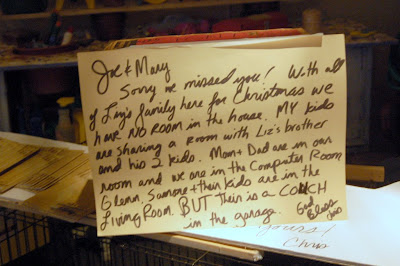 Joe & Mary
Sorry we missed you! With all
of Liz's family here for Christmas we
have NO ROOM in the house. MY kids
are sharing a room with Liz's brother
and his 2 kids. Mom + Dad are in our
room and we are in the Computer Room
Glenn, + their kids are in the
Living Room. BUT their is a COUCH
in the garage. God
Bless
Yours,
Chris